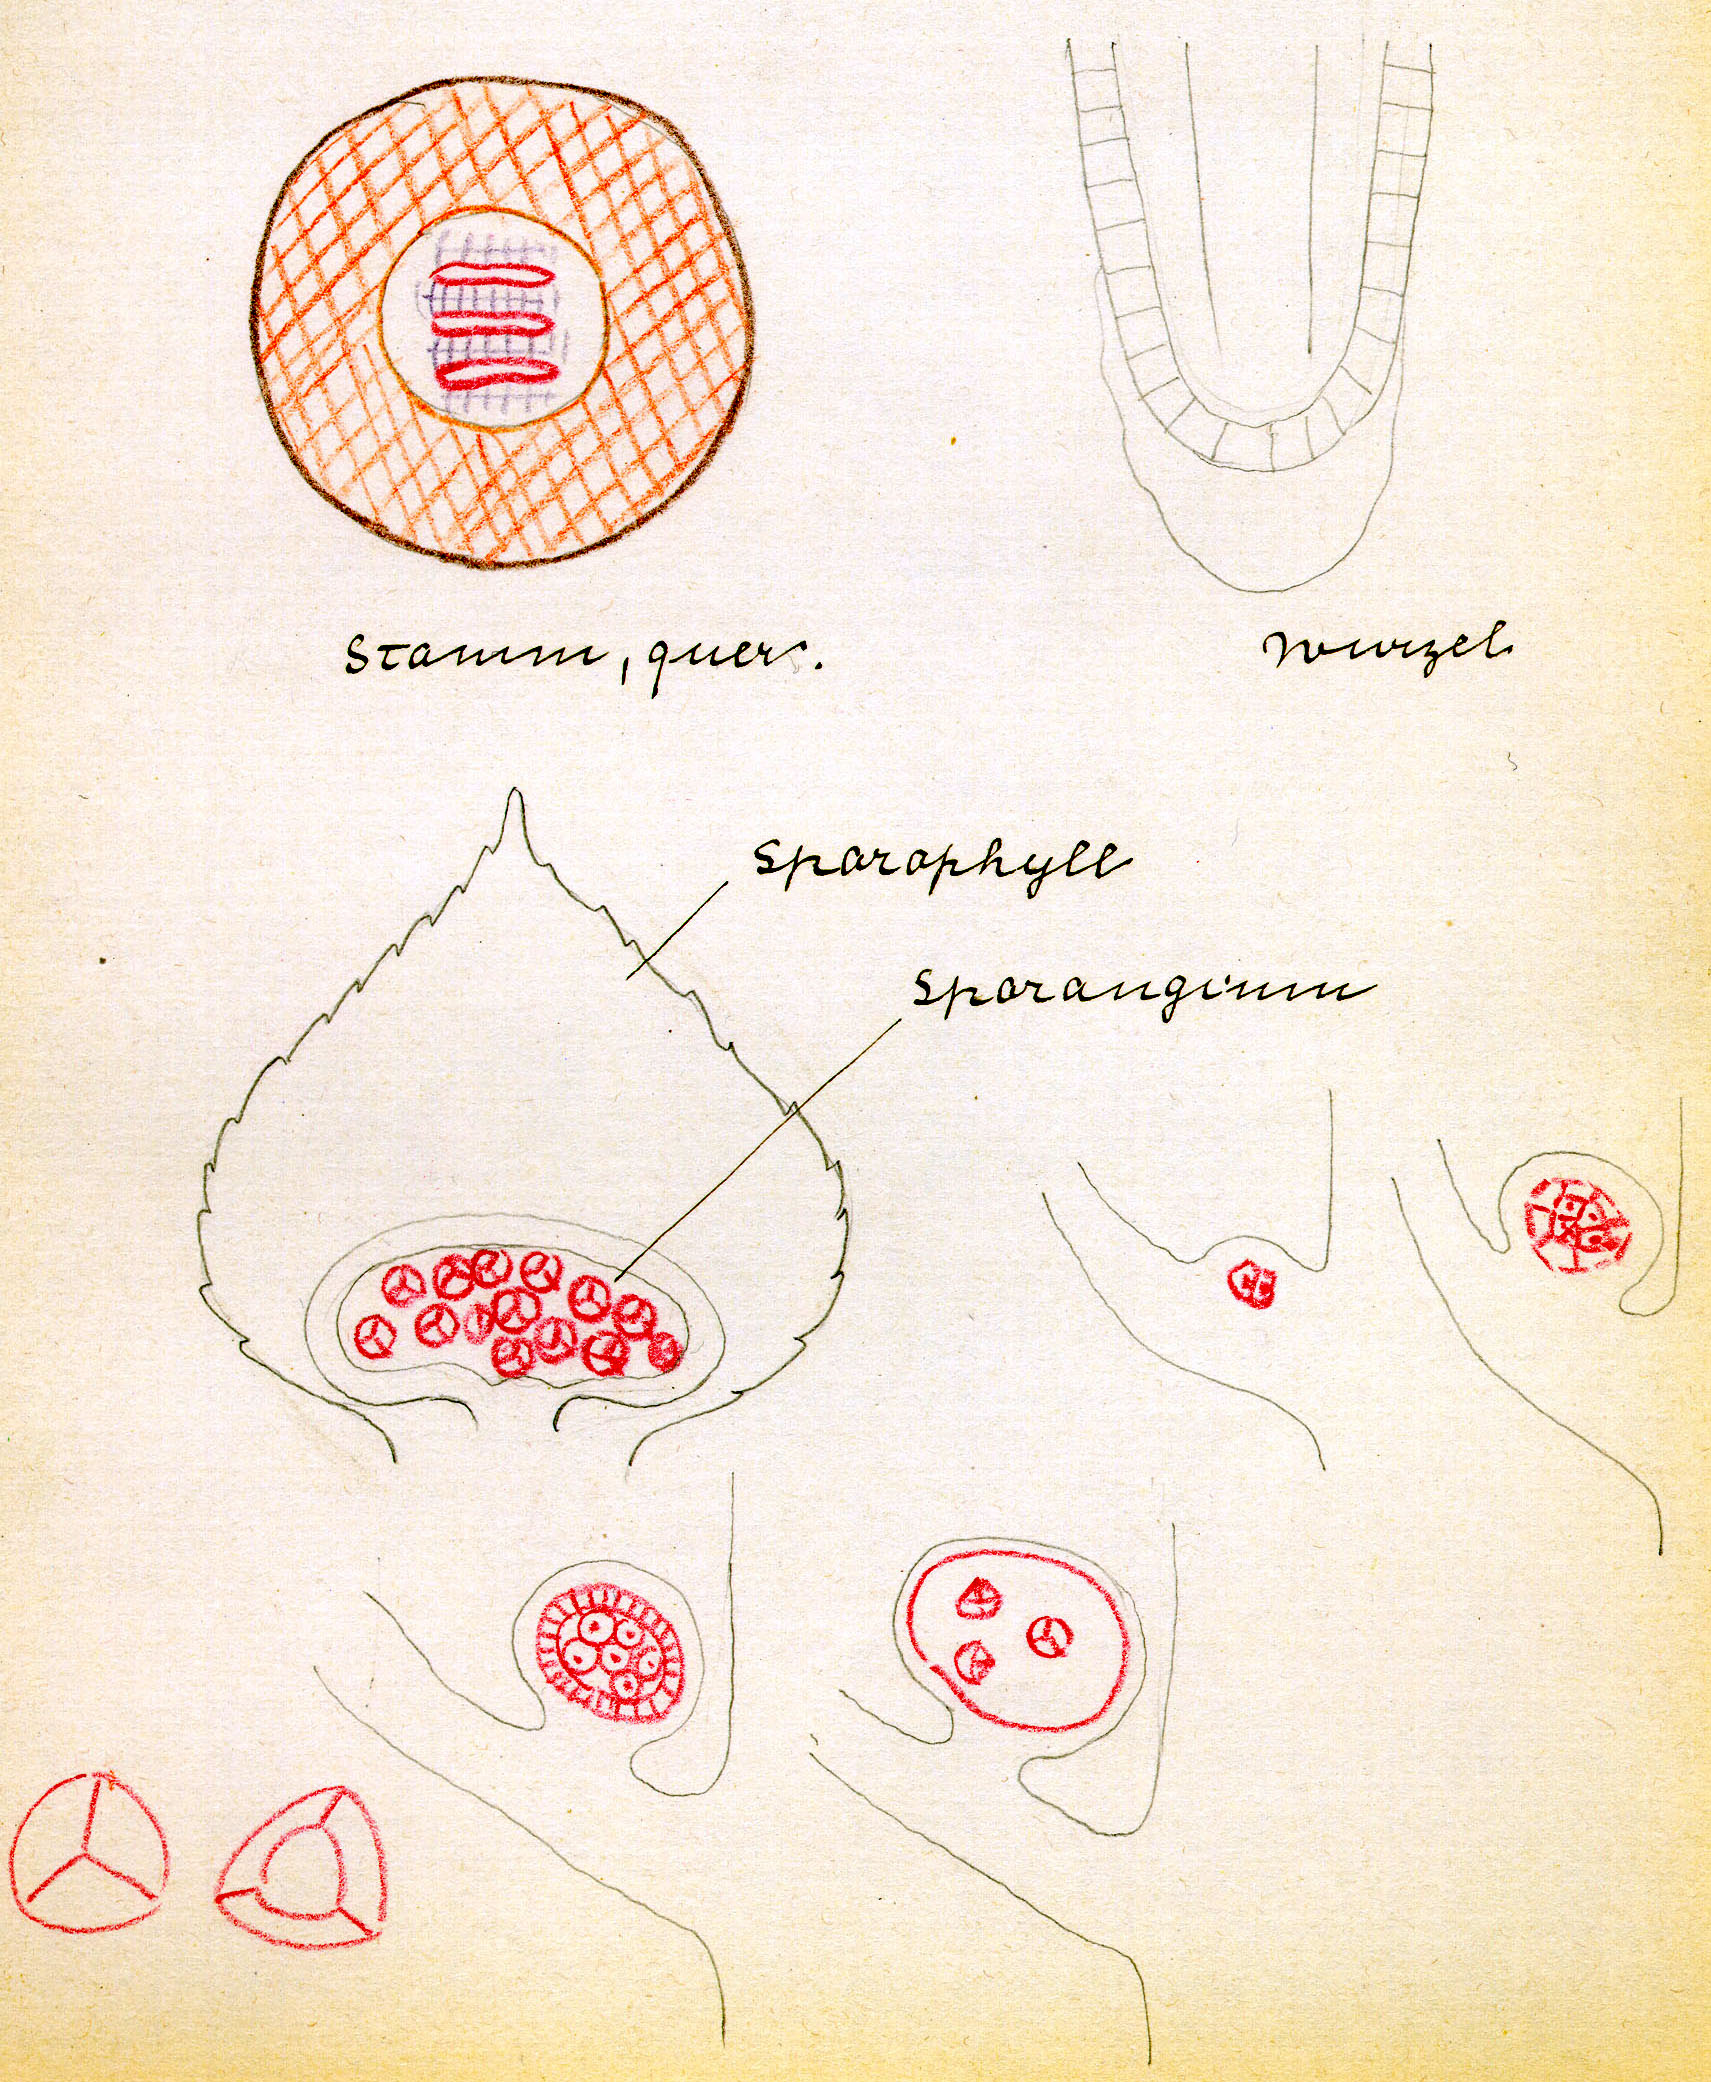 Stamm, quer.
Wurzel
Sporophyll
Sporangium